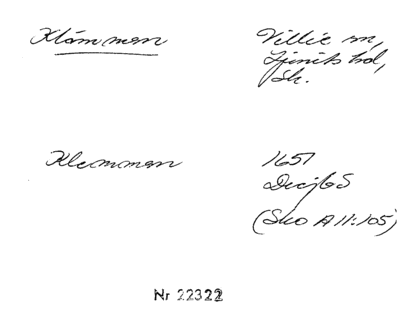 Klámmen
Villie sn,
Ljunits hd,
Sk.
Klemmen
1651
DecjbS
(Sko A II:105)
Nr 22322